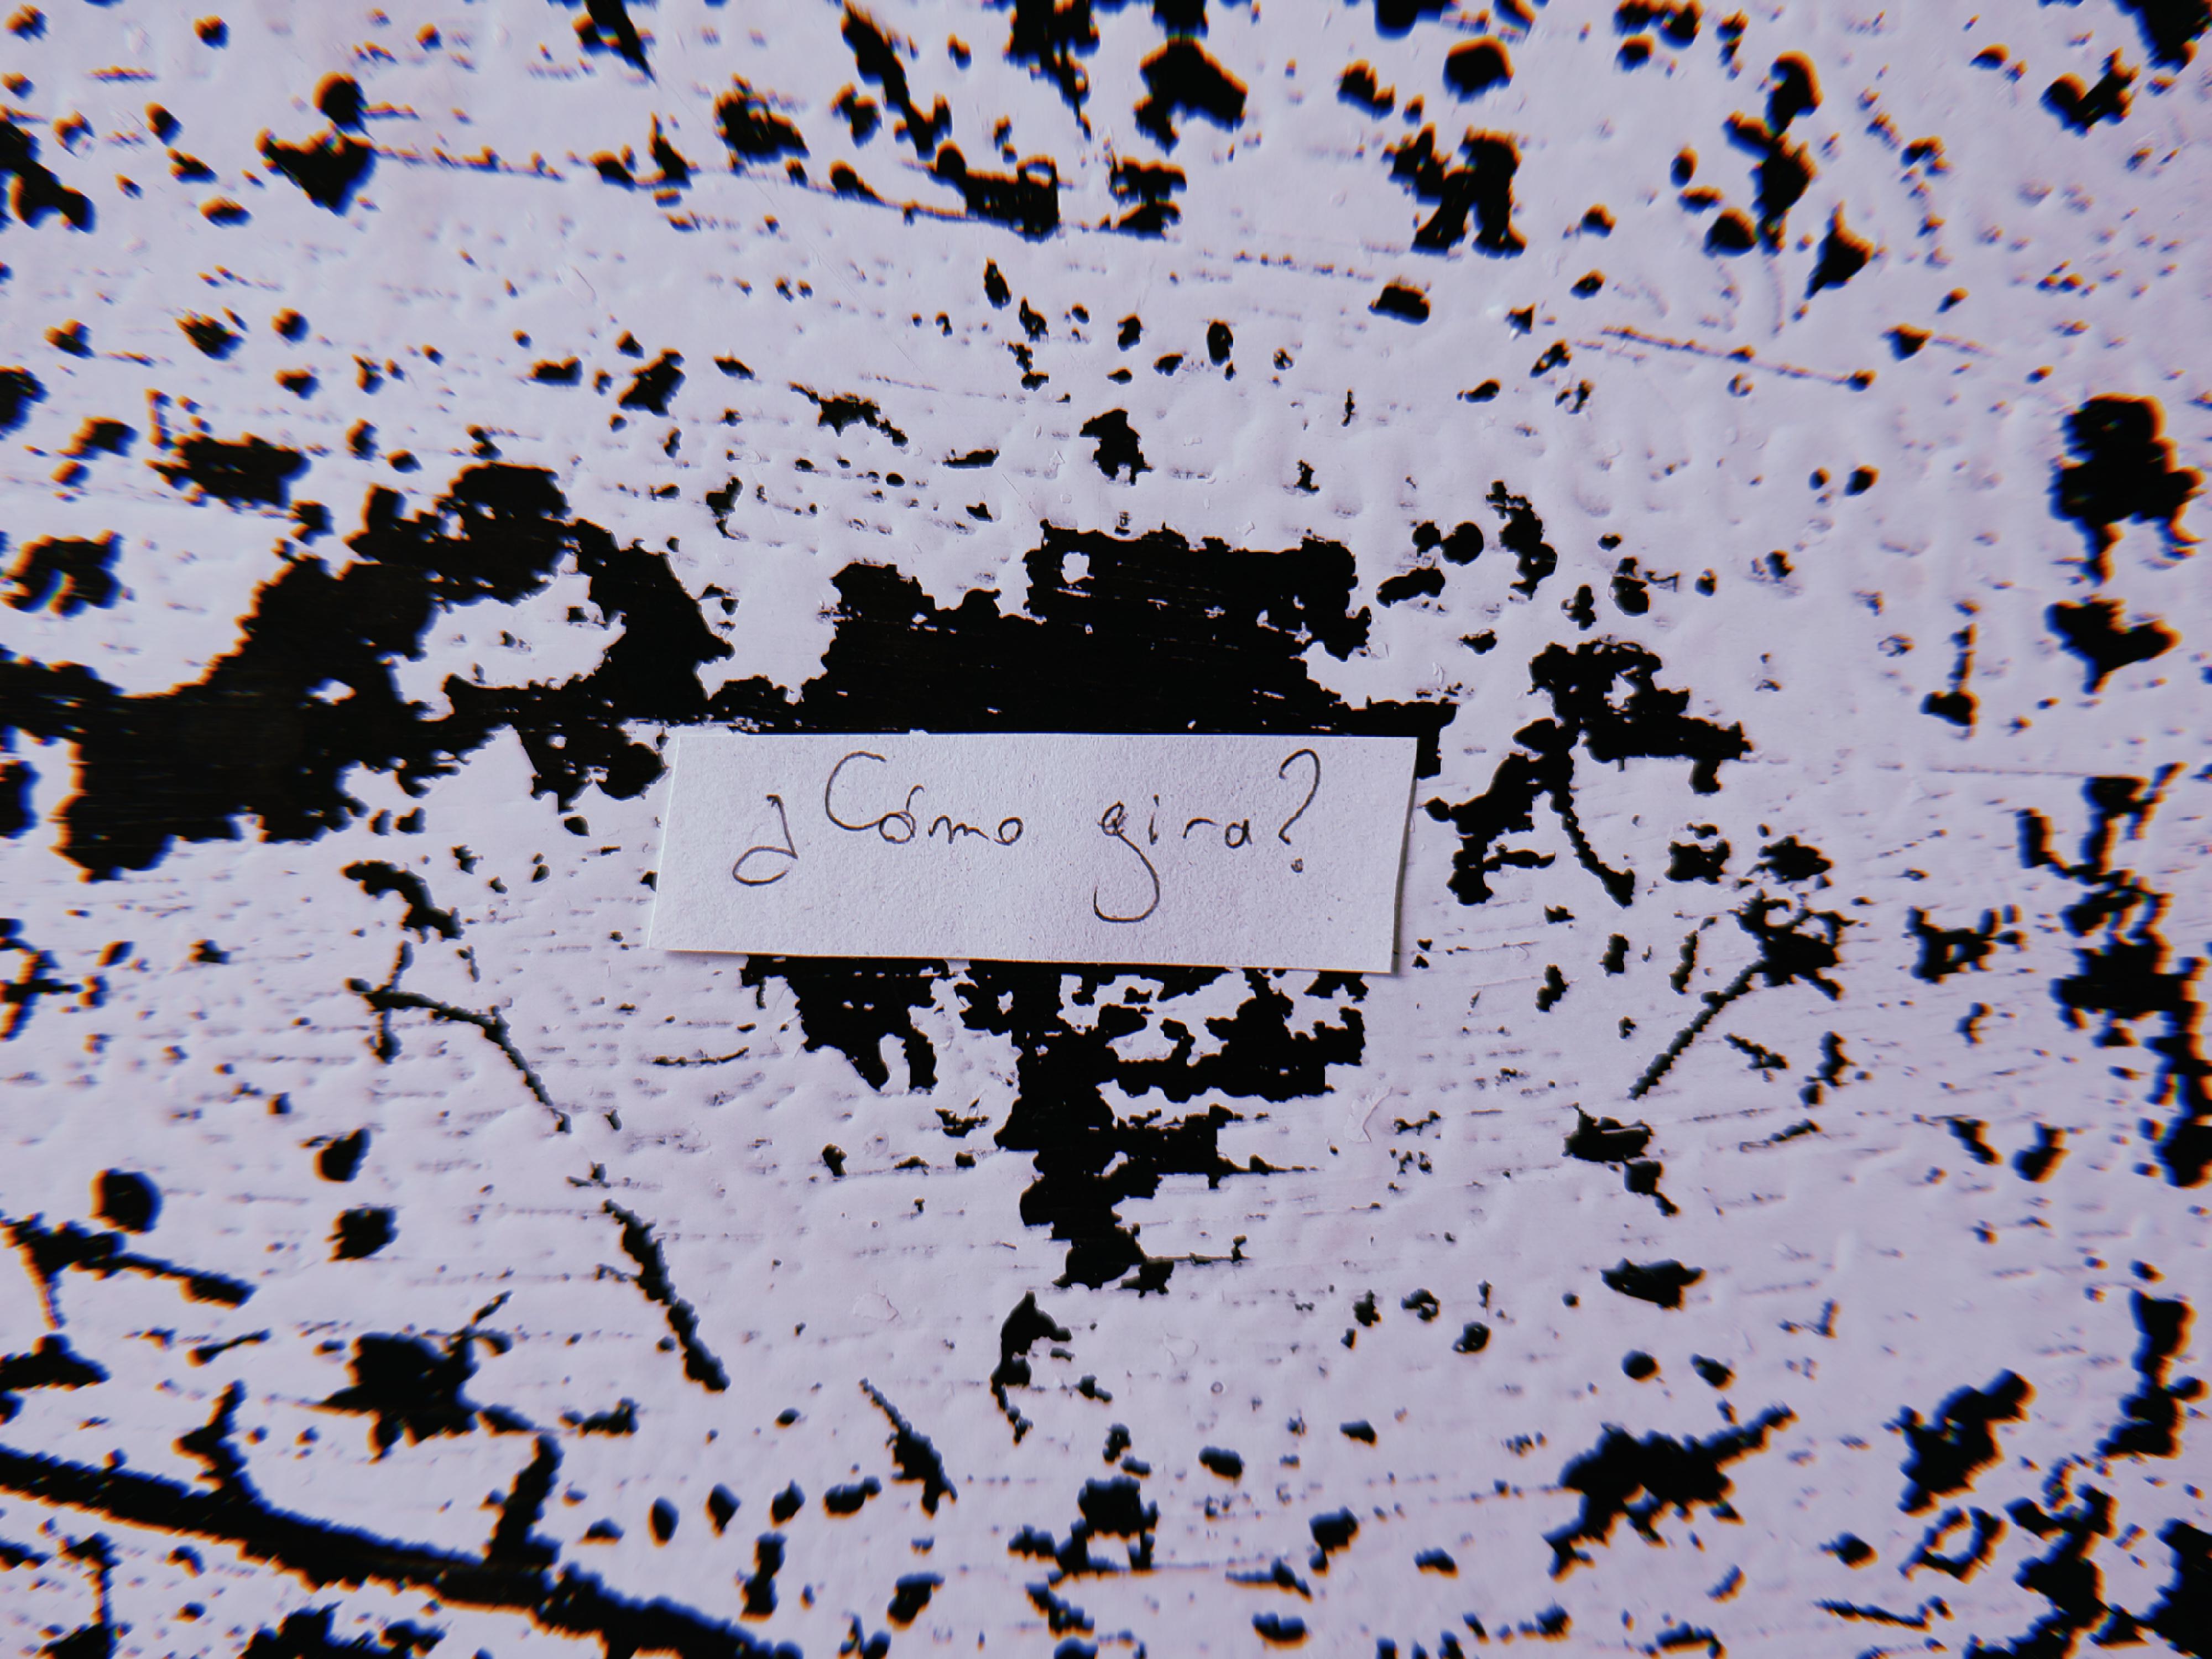 ¿Cómo gira?